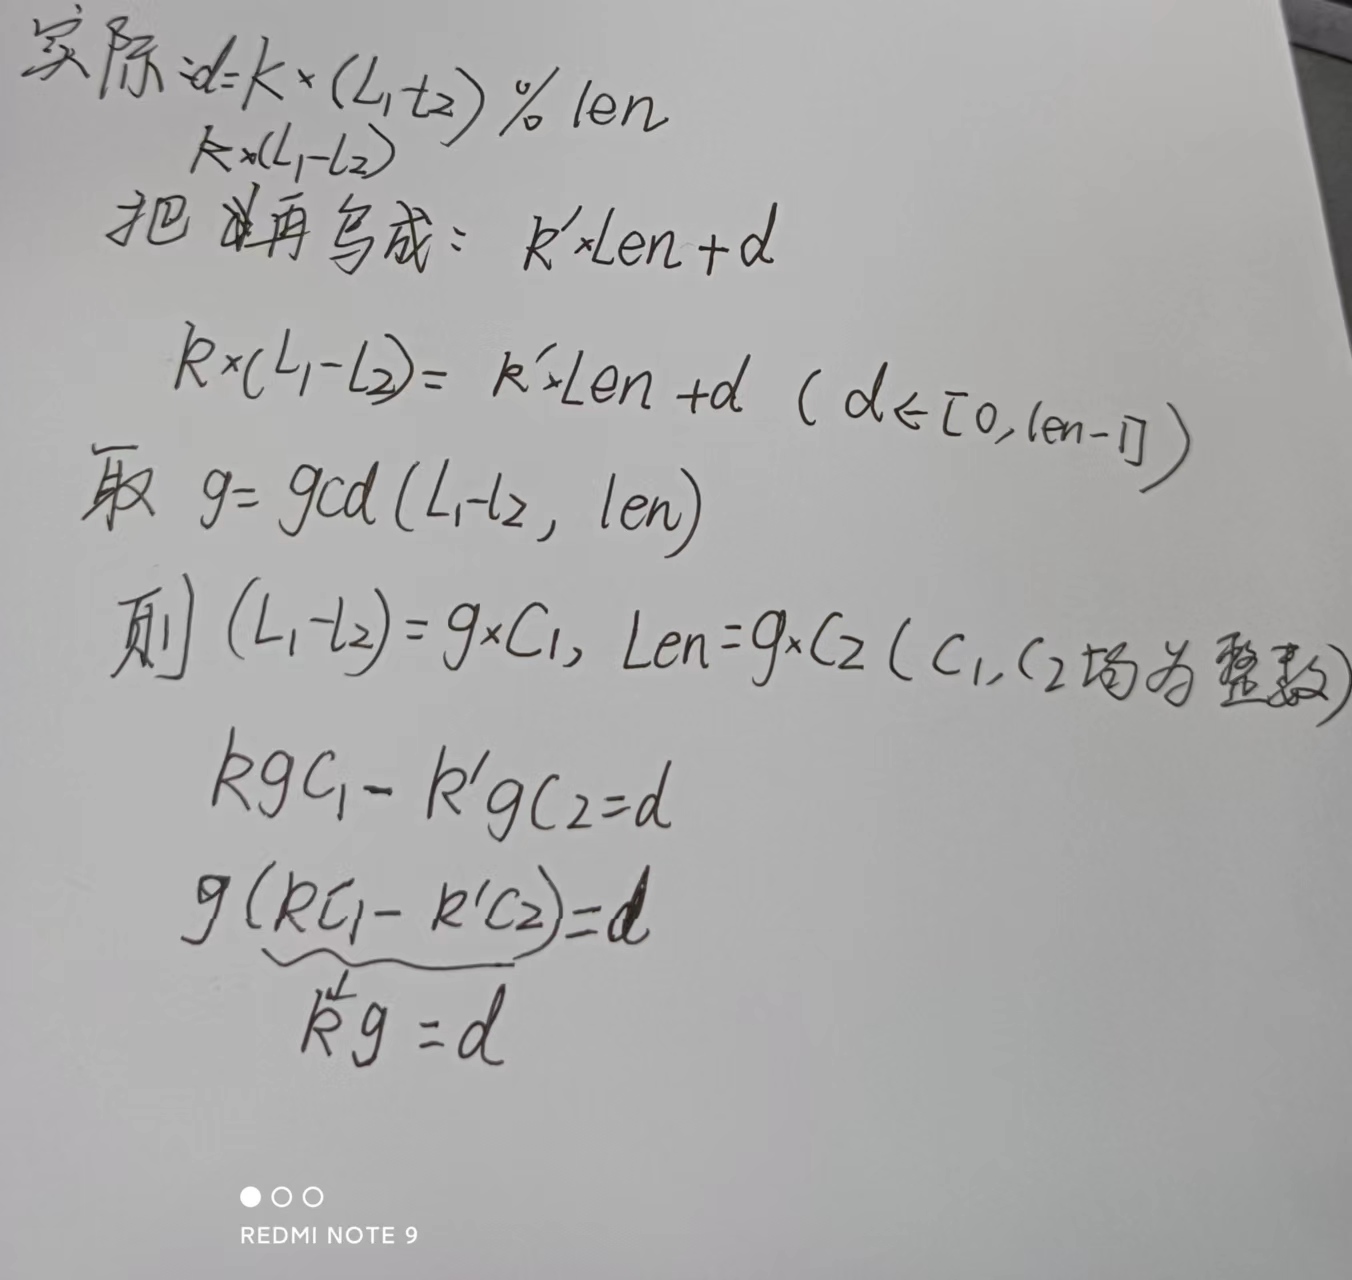 实际:d=k×(L₁-t₂)%len
k×(L₁-l₂)
把 再写成: k'×Len+d
k×(L₁-l₂)= k'×Len+d (d∈[0,len-1])
取 g=gcd(L₁-l₂, len)
则(L₁-l₂)=g×C₁, Len=g×C₂(C₁,C₂均为整数)
kgC₁- k'gC₂=d
g(kC₁- k'C₂)=d
kg=d
REDMI NOTE 9